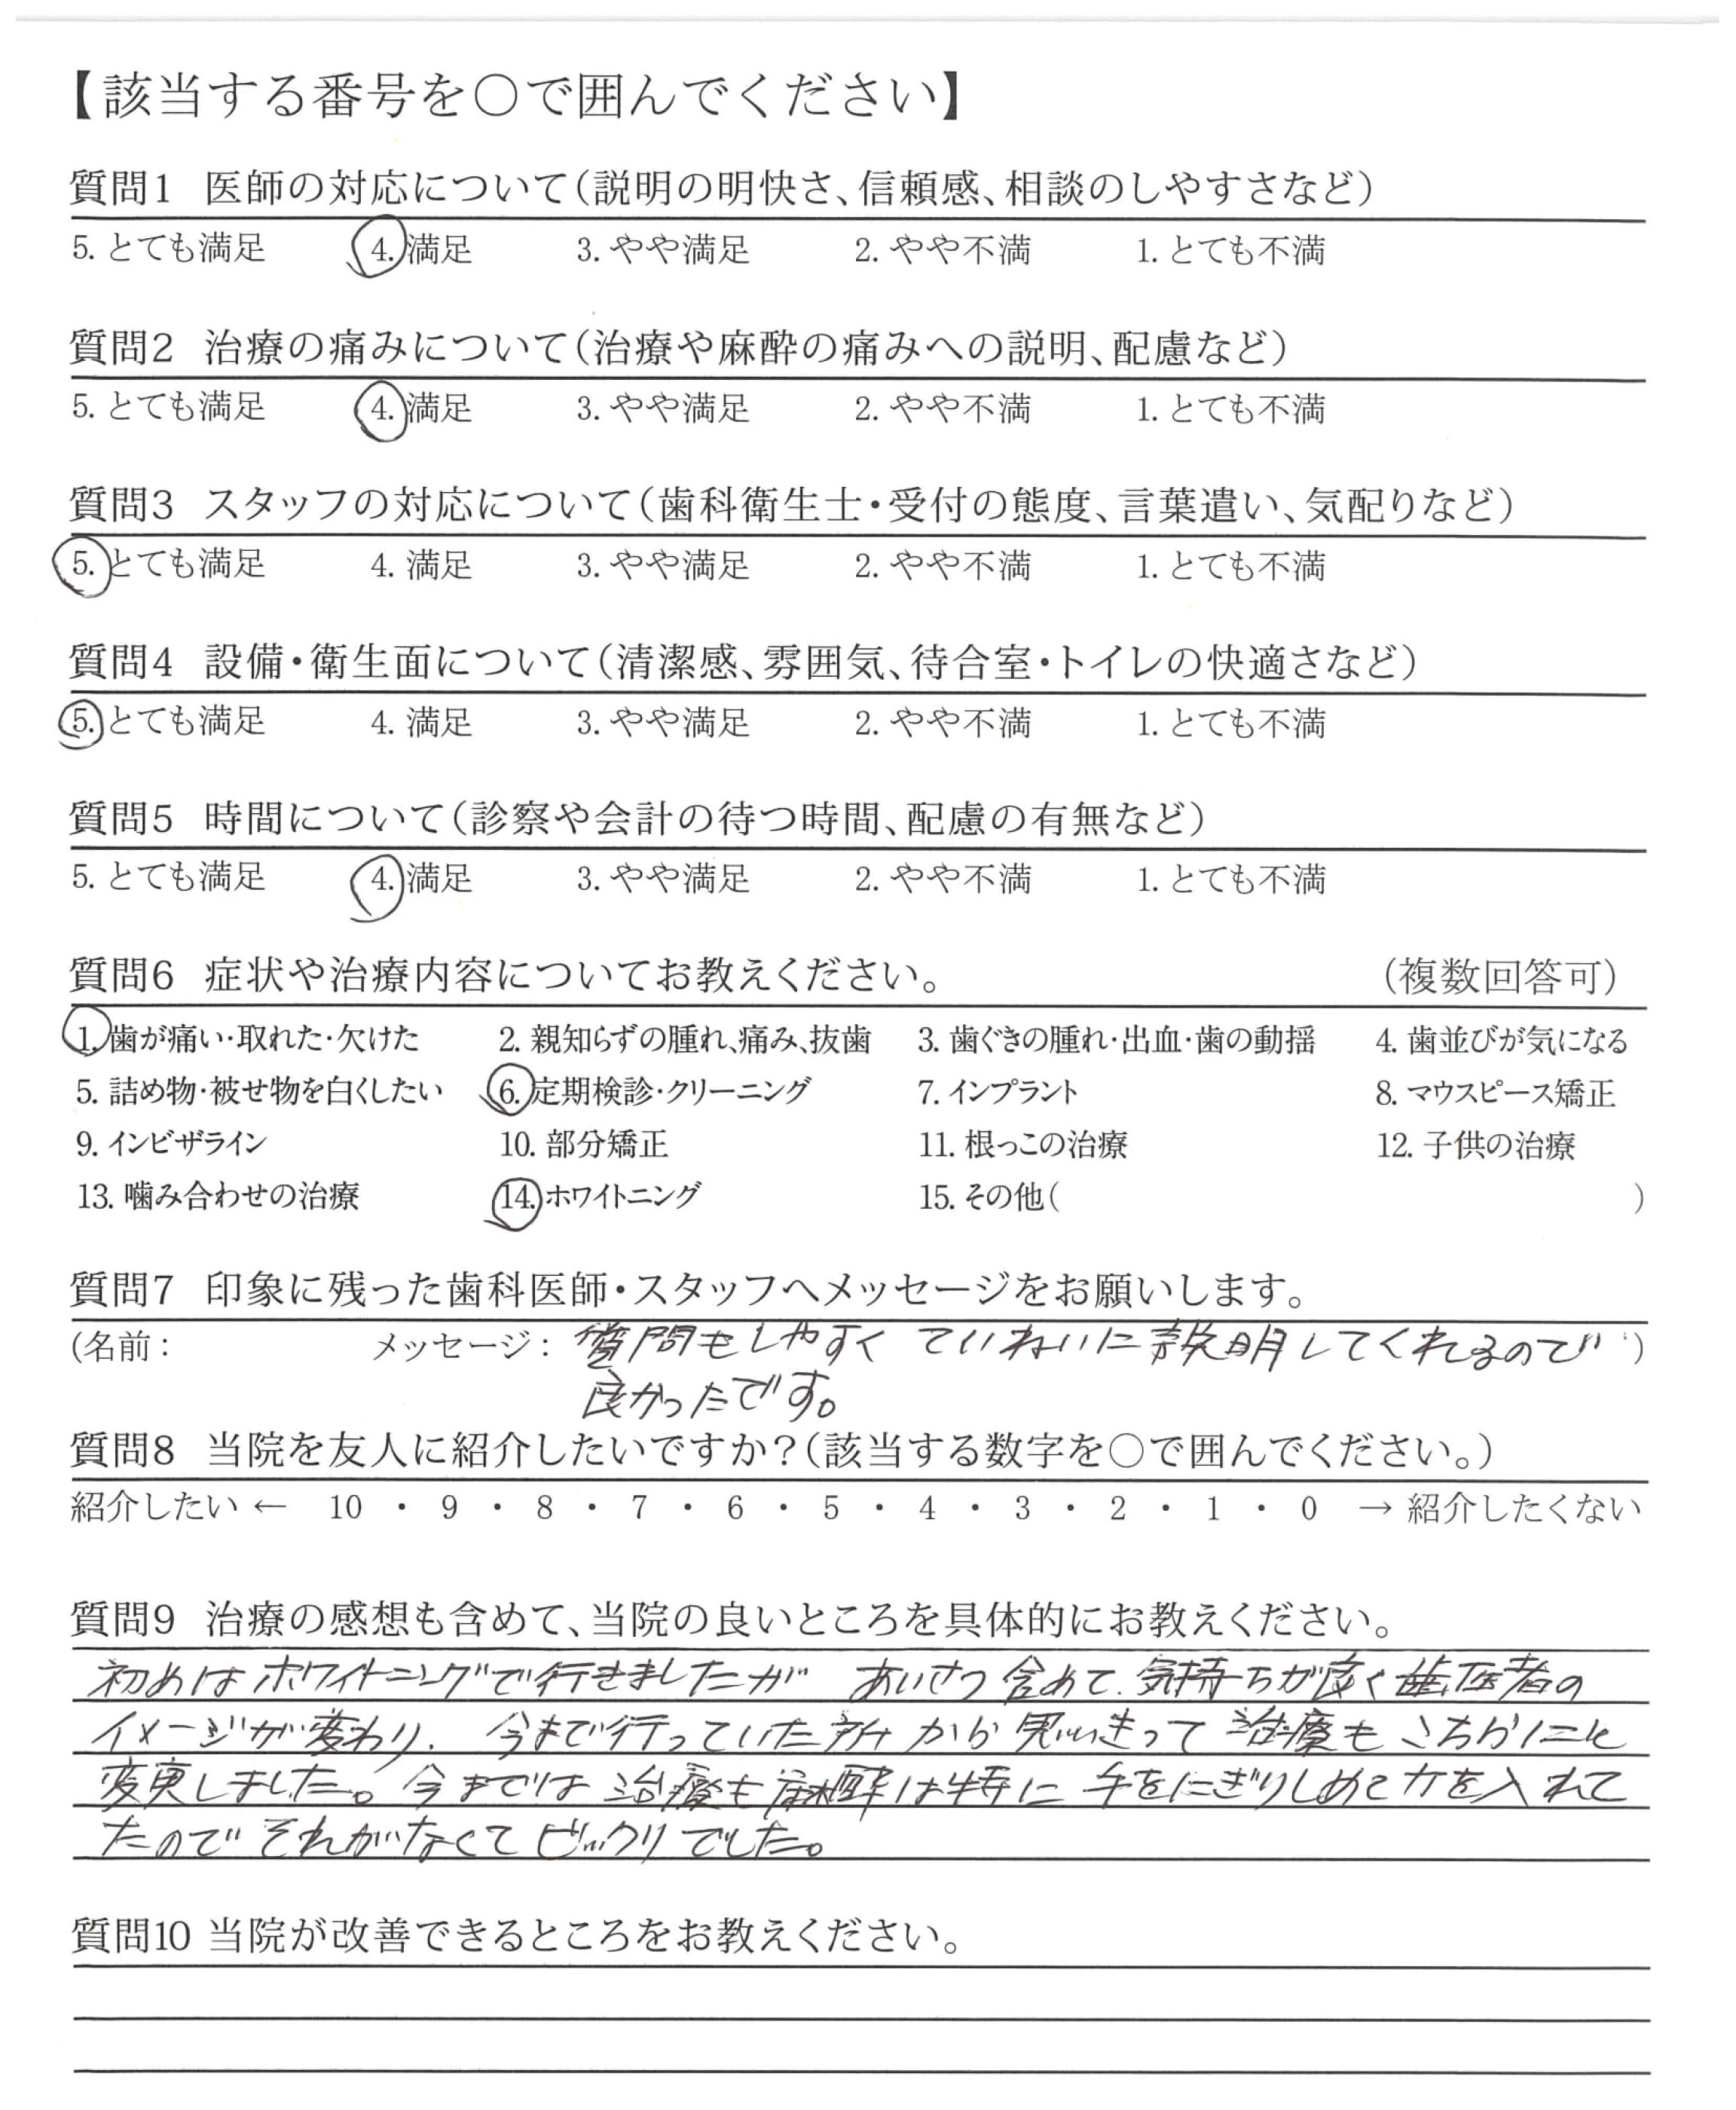 【該当する番号を○で囲んでください】
質問1 医師の対応について(説明の明快さ、信頼感、相談のしやすさなど)
5. とても満足 4. 満足 3. やや満足 2. やや不満 1. とても不満
質問2 治療の痛みについて(治療や麻酔の痛みへの説明、配慮など)
5. とても満足 4. 満足 3. やや満足 2. やや不満 1. とても不満
質問3 スタッフの対応について(歯科衛生士・受付の態度、言葉遣い、気配りなど)
5. とても満足 4. 満足 3. やや満足 2. やや不満 1. とても不満
質問4 設備・衛生面について(清潔感、雰囲気、待合室・トイレの快適さなど)
5. とても満足 4. 満足 3. やや満足 2. やや不満 1. とても不満
質問5 時間について(診察や会計の待つ時間、配慮の有無など)
5. とても満足 4. 満足 3. やや満足 2. やや不満 1. とても不満
質問6 症状や治療内容についてお教えください。 (複数回答可)
1. 歯が痛い・取れた・欠けた 2. 親知らずの腫れ、痛み、抜歯 3. 歯ぐきの腫れ・出血・歯の動揺 4. 歯並びが気になる
5. 詰め物・被せ物を白くしたい 6. 定期検診・クリーニング 7. インプラント 8. マウスピース矯正
9. インビザライン 10. 部分矯正 11. 根っこの治療 12. 子供の治療
13. 噛み合わせの治療 14. ホワイトニング 15. その他( )
質問7 印象に残った歯科医師・スタッフへメッセージをお願いします。
(名前: メッセージ: 質問もしやすく ていねいに説明してくれるので )
良かったです。
質問8 当院を友人に紹介したいですか?(該当する数字を○で囲んでください。)
紹介したい ← 10 ・ 9 ・ 8 ・ 7 ・ 6 ・ 5 ・ 4 ・ 3 ・ 2 ・ 1 ・ 0 → 紹介したくない
質問9 治療の感想も含めて、当院の良いところを具体的にお教えください。
初めはホワイトニングで行きましたが あいさつ含めて、気持ちが良く歯医者の
イメージが変わり、今まで行っていた所から思いきって治療もこちらにと
変更しました。今までは治療も麻酔は特に手をにぎりしめて力を入れて
たのでそれがなくてビックリでした。
質問10 当院が改善できるところをお教えください。